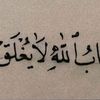 بَابُ اللّٰهِ لَا يُغْلَقُ